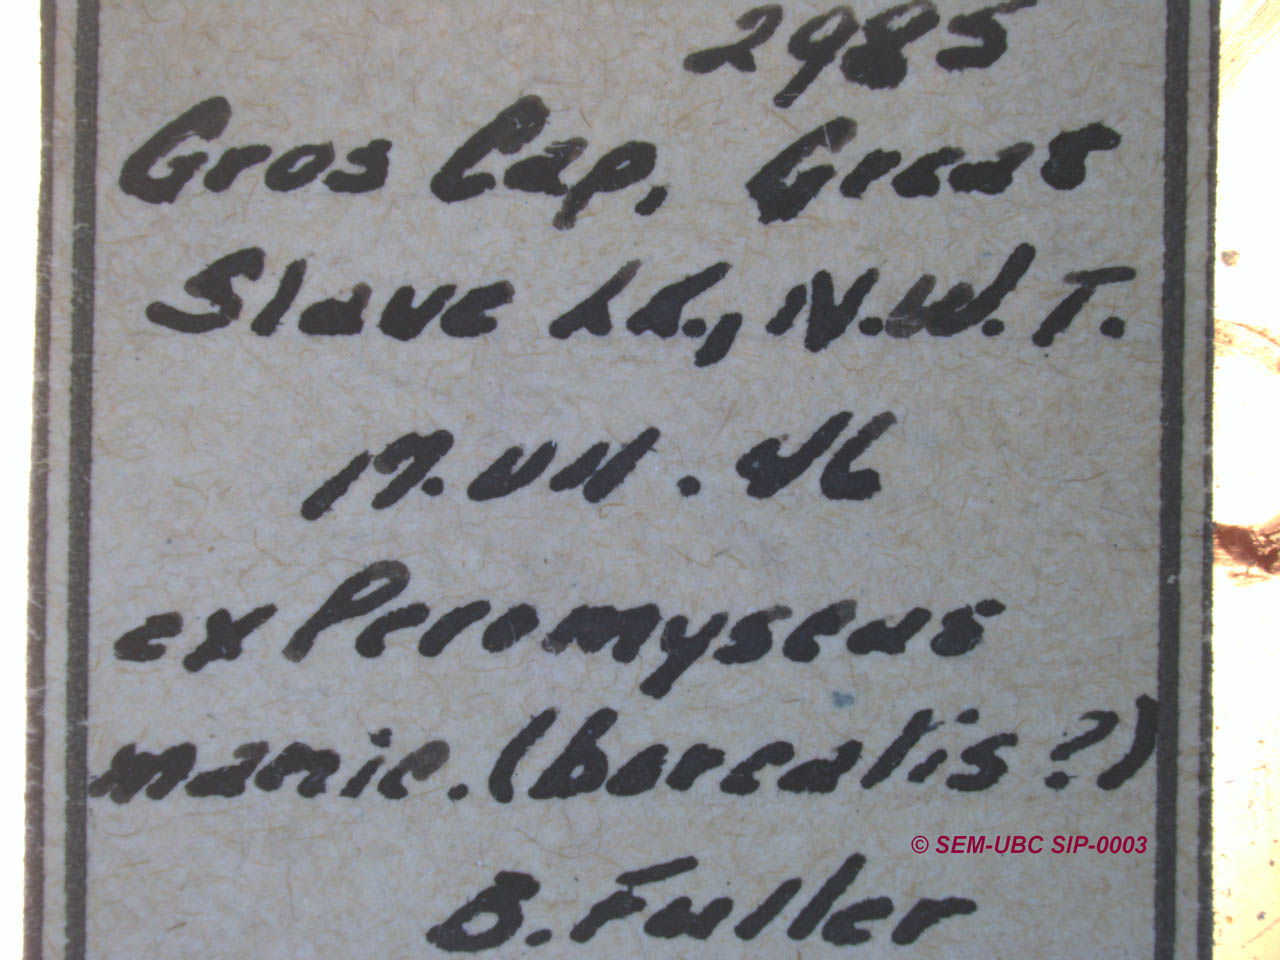 2985
Gros Cap, Great
Slave Lk., N.W.T.
17.VII.46
ex Peromyscus
manic. (borealis?)
© SEM-UBC SIP-0003
B. Fuller